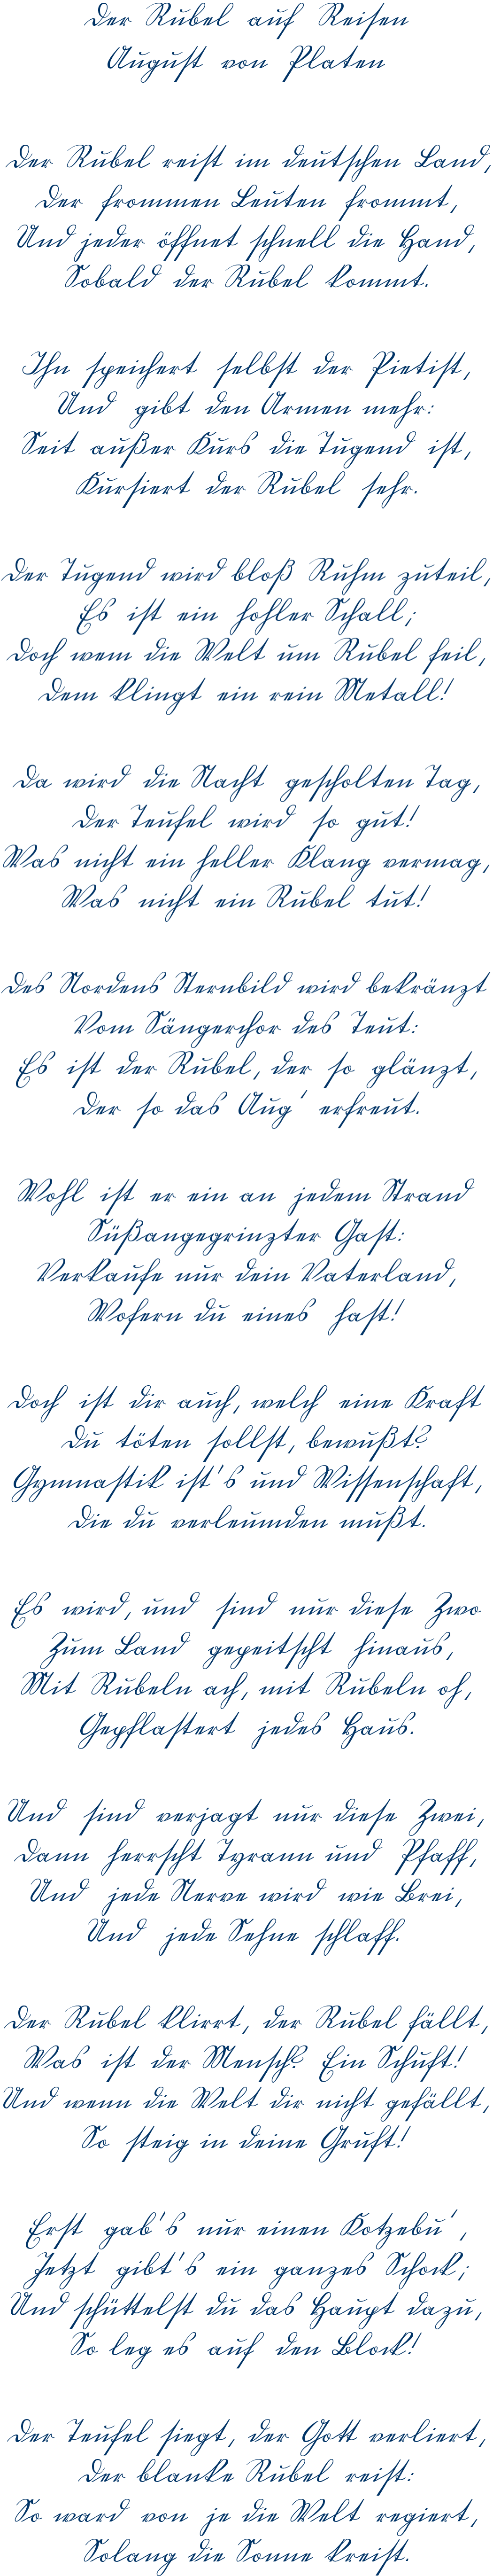 Der Rubel auf Reisen
August von Platen
Der Rubel reist im deutschen Land,
Der frommen Leuten frommt,
Und jeder öffnet schnell die Hand,
Sobald der Rubel kommt.
Ihn speichert selbst der Pietist,
Und gibt den Armen mehr:
Seit außer Kurs die Tugend ist,
Kursiert der Rubel sehr.
Der Tugend wird bloß Ruhm zuteil,
Es ist ein hohler Schall;
Doch wem die Welt um Rubel feil,
Dem klingt ein rein Metall!
Da wird die Nacht gescholten Tag,
Der Teufel wird so gut!
Was nicht ein heller Klang vermag,
Was nicht ein Rubel tut!
Des Nordens Sternbild wird bekränzt
Vom Sängerchor des Teut:
Es ist der Rubel, der so glänzt,
Der so das Aug' erfreut.
Wohl ist er ein an jedem Strand
Süßangegrinzter Gast:
Verkaufe nur dein Vaterland,
Wofern du eines hast!
Doch ist dir auch, welch eine Kraft
Du töten sollst, bewußt?
Gymnastik ist's und Wissenschaft,
Die du verleumden mußt.
Es wird, und sind nur diese Zwo
Zum Land gepeitscht hinaus,
Mit Rubeln ach, mit Rubeln oh,
Gepflastert jedes Haus.
Und sind verjagt nur diese Zwei,
Dann herrscht Tyrann und Pfaff,
Und jede Nerve wird wie Brei,
Und jede Sehne schlaff.
Der Rubel klirrt, der Rubel fällt,
Was ist der Mensch? Ein Schuft!
Und wenn die Welt dir nicht gefällt,
So steig in deine Gruft!
Erst gab's nur einen Kotzebu',
Jetzt gibt's ein ganzes Schock;
Und schüttelst du das Haupt dazu,
So leg es auf den Block!
Der Teufel siegt, der Gott verliert,
Der blanke Rubel reist:
So ward von je die Welt regiert,
Solang die Sonne kreist.